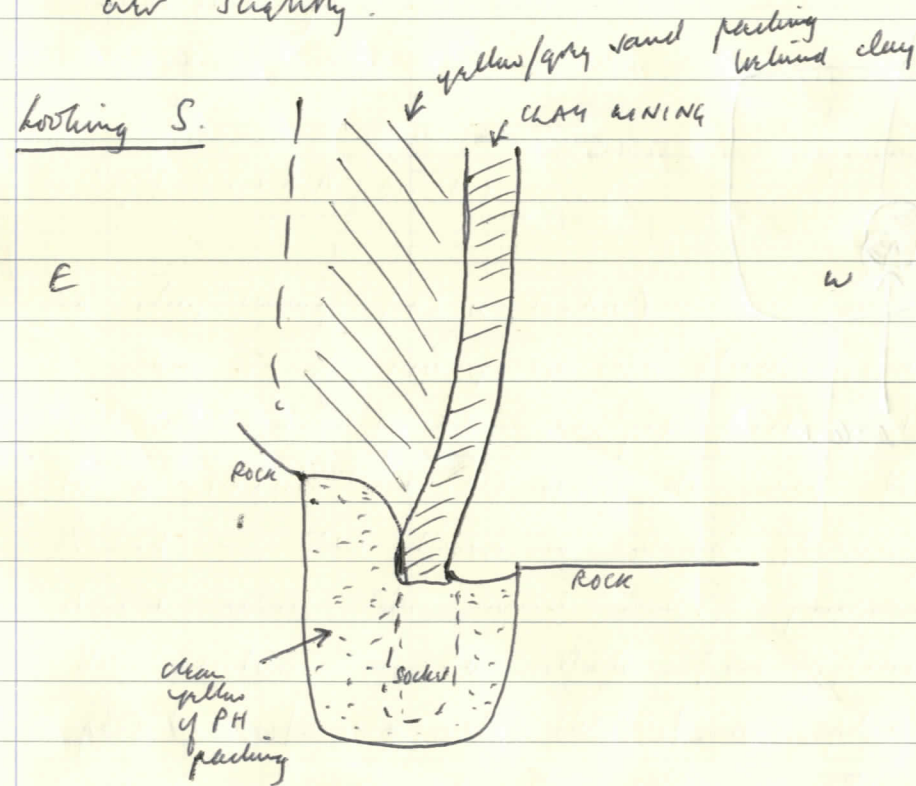 are slightly.
yellow/grey sand packing
behind clay
Looking S.
CLAY LINING
E
W
ROCK
ROCK
socket
clean
yellow
of PH
packing